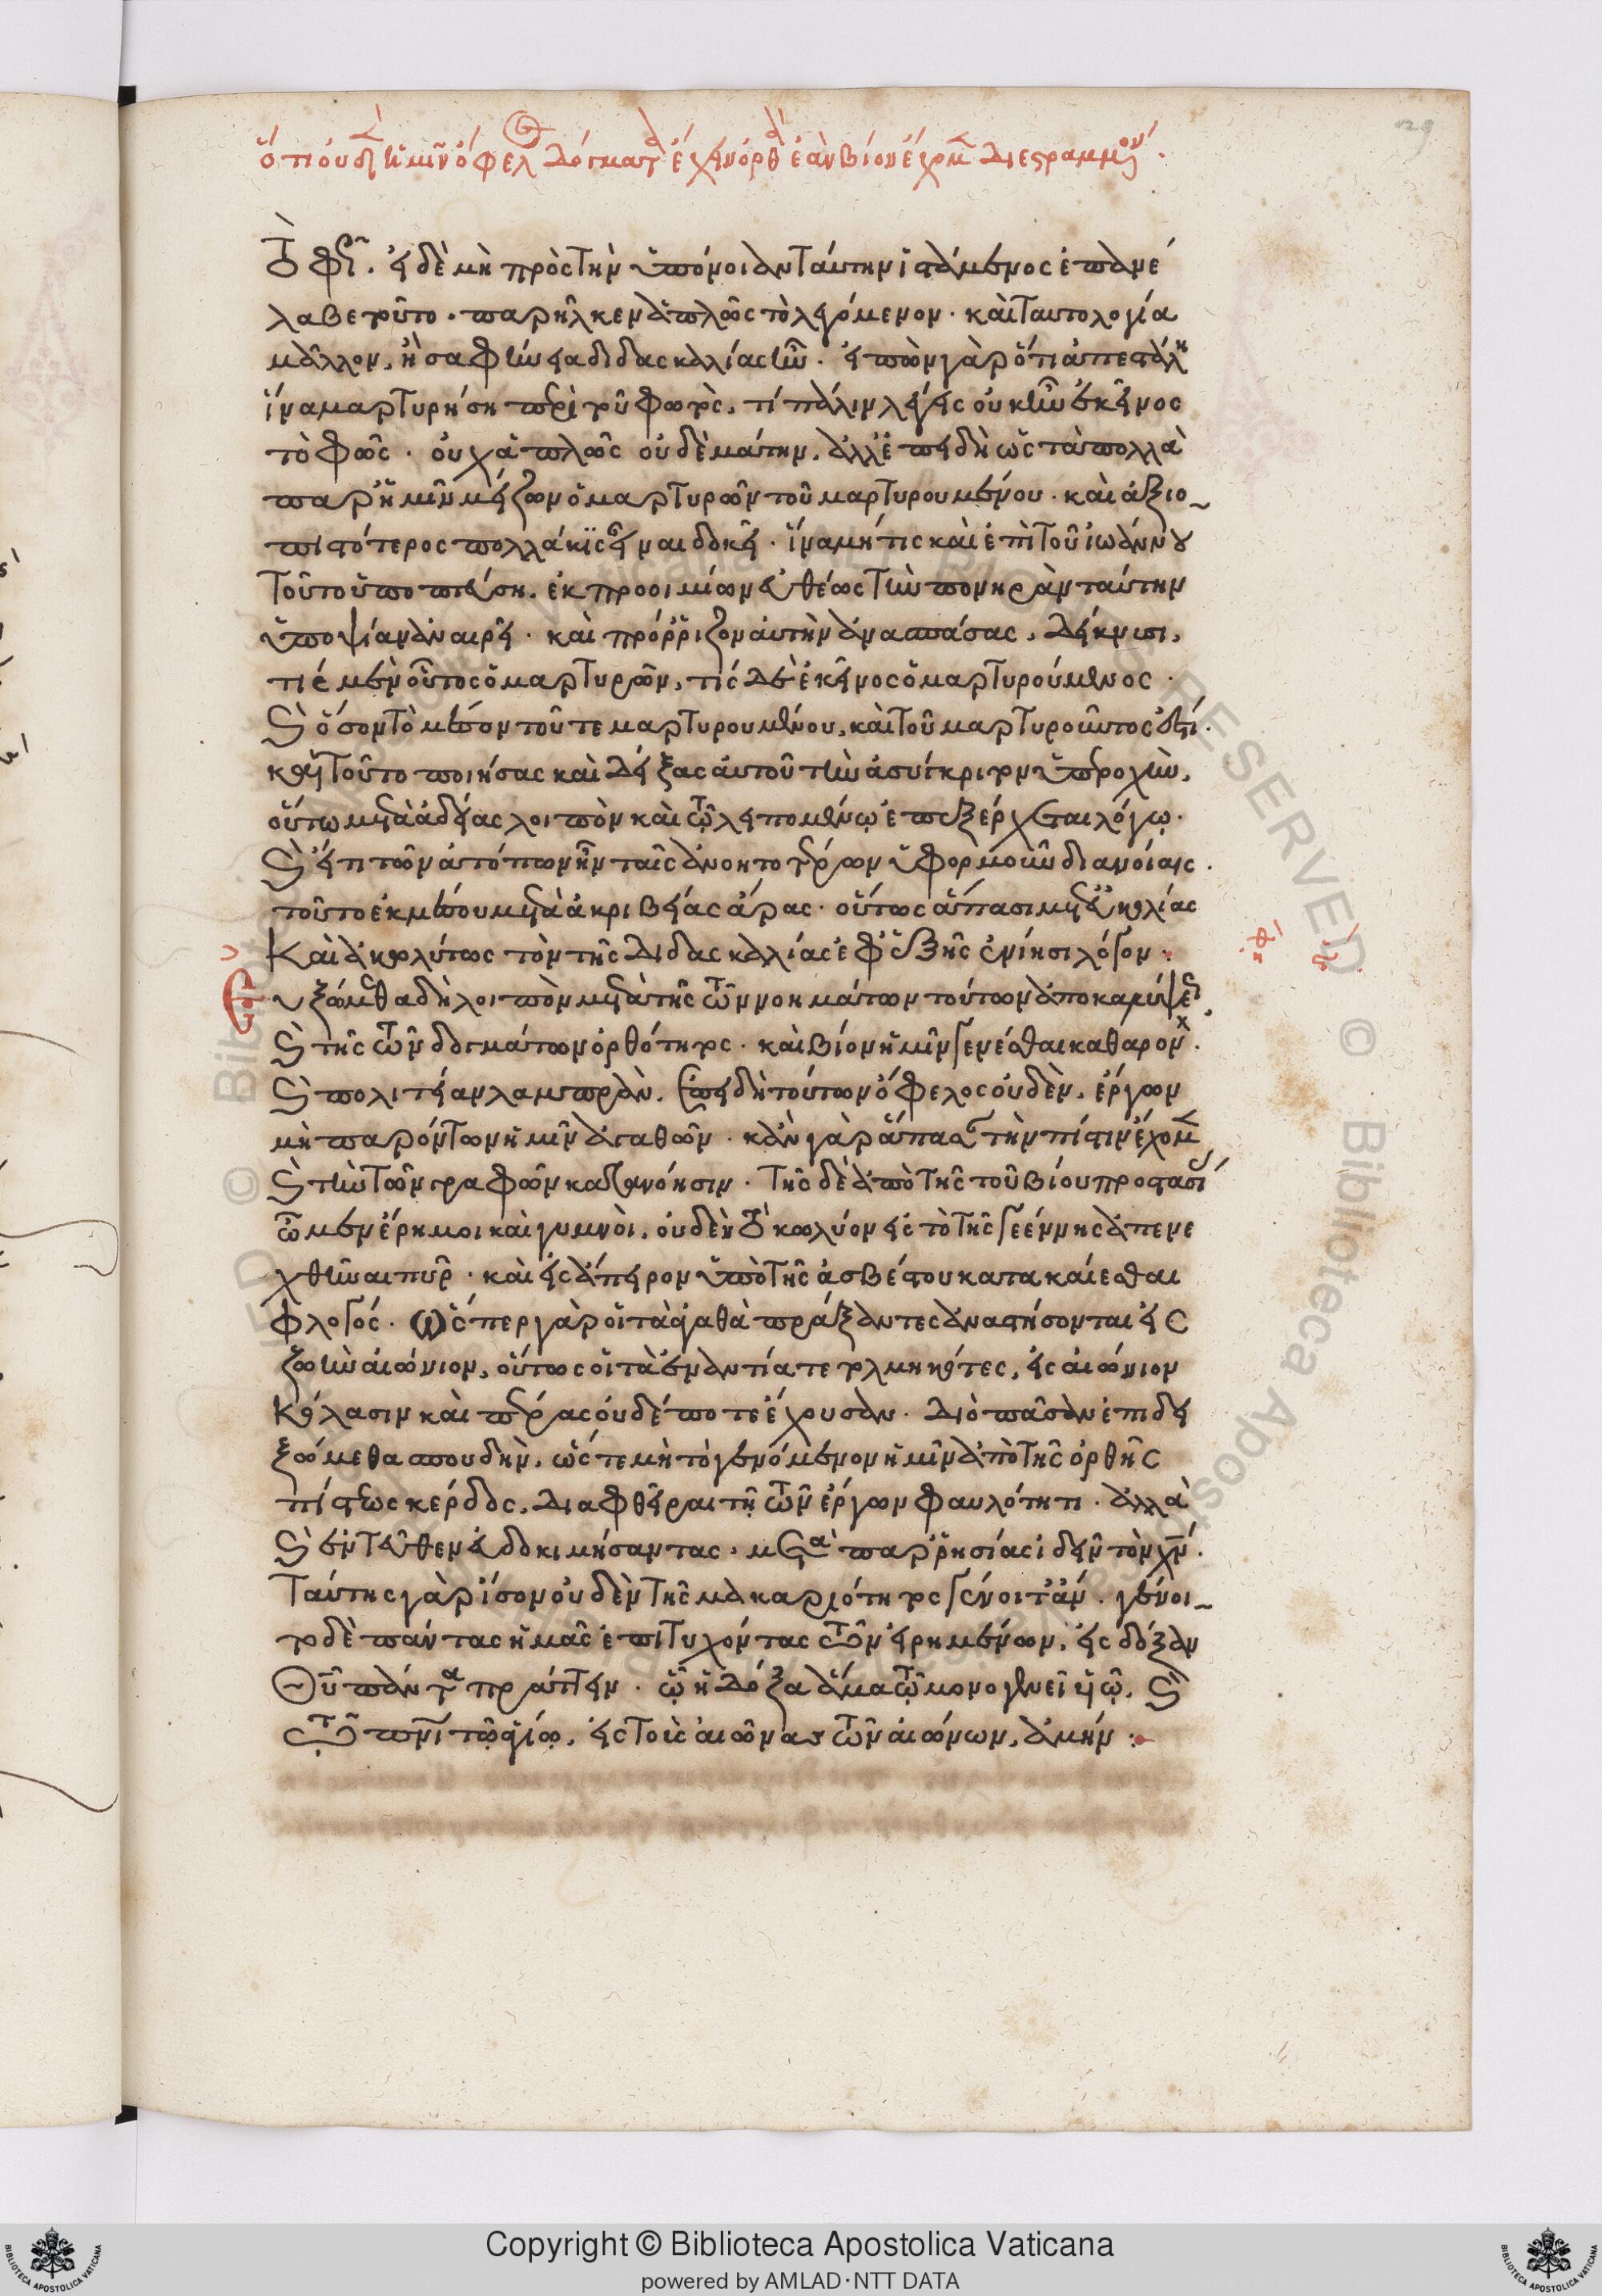 ὅτι οὐδὲν ἡμῖν ὄφελος δογμάτων ἔχειν ὀρθ ἐὰν βίον ἔχωμεν διεστραμμένον.
τὸ φῶς. εἰ δὲ μὴ πρὸς τὴν ὑπόνοιαν ταύτην ἱστάμενος ἐπανέ
λαβε τοῦτο. παρῆλκεν ἁπλῶς τὸ λεγόμενον. καὶ ταυτολογία
μᾶλλον, ἢ σαφήνεια διδασκαλίας ἦν. εἰπὼν γὰρ ὅτι ἀπεστάλη
ἵνα μαρτυρήση περὶ τοῦ φωτὸς, τί πάλιν λέγεις οὐκ ἦν ἐκεῖνος
τὸ φῶς. οὐχ ἁπλῶς οὐδὲ μάτην, ἀλλ' ἐπειδὴ ὡς τὰ πολλὰ
παρ' ἡμῖν μείζων ὁ μαρτυρῶν τοῦ μαρτυρουμένου. καὶ ἀξιο
πιστότερος πολλάκις εἶναι δοκεῖ. ἵνα μή τις καὶ ἐπὶ τοῦ ἰωάννου
τοῦτο ὑποπτεύση. ἐκ προοιμίων εὐθέως τὴν πονηρὰν ταύτην
ὑποψίαν ἀναιρεῖ. καὶ πρόρριζον αὐτὴν ἀνασπάσας, δείκνυσι,
τίς μὲν οὗτος ὁ μαρτυρῶν, τίς δὲ ἐκεῖνος ὁ μαρτυρούμενος.
καὶ ὅσον τὸ μέσον τοῦ τε μαρτυρουμένου, καὶ τοῦ μαρτυροῦντος ἐστί.
καὶ τοῦτο ποιήσας καὶ δείξας αὐτοῦ τὴν ἀσύγκριτον ὑπεροχὴν,
οὕτω μετὰ ἀδείας λοιπὸν καὶ τῷ λειπομένῳ ἐπεξέρχεται λόγῳ.
καὶ εἴ τι τῶν ἀτόπων ἦν ταῖς ἀνοητοτέρων ὑφορμοῦν διανοίαις.
τοῦτο ἐκ μέσου μετὰ ἀκριβείας ἄρας. οὕτως ἅπασι μετ' εὐκολίας
καὶ ἀκωλύτως τὸν τῆς διδασκαλίας ἐφεξῆς ἐνίησι λόγον:
εὐξώμεθα δὴ λοιπὸν μετὰ τῆς τῶν νοημάτων τούτων ἀποκαλύψεως,
καὶ τῆς τῶν δογμάτων ὀρθότητος. καὶ βίον ἡμῖν γενέσθαι καθαρὸν.
καὶ πολιτείαν λαμπρὰν. ἐπειδὴ τούτων ὄφελος οὐδὲν, ἔργων
μὴ παρόντων ἡμῖν ἀγαθῶν. κἂν γὰρ ἅπασαν τὴν πίστιν ἔχωμεν
καὶ τὴν τῶν γραφῶν κατανόησιν. τῆς δὲ ἀπὸ τῆς τοῦ βίου προστασί
ὦμεν ἔρημοι καὶ γυμνοὶ, οὐδὲν τὸ κωλύον εἰς τὸ τῆς γεέννης ἀπενε
χθῆναι πῦρ. καὶ εἰς ἄπειρον ὑπὸ τῆς ἀσβέστου κατακαίεσθαι
φλογός. ὥσπερ γὰρ οἱ τὰ ἀγαθὰ πράξαντες ἀναστήσονται εἰς
ζωὴν αἰώνιον, οὕτως οἱ τὰ ἐναντία τετολμηκότες, εἰς αἰώνιον
κόλασιν καὶ πέρας οὐδέποτε ἔχουσαν. διὸ πᾶσαν ἐπιδει
ξώμεθα σπουδὴν, ὥστε μὴ τὸ γενόμενον ἡμῖν ἀπὸ τῆς ὀρθῆς
πίστεως κέρδος, διαφθεῖραι τῇ τῶν ἔργων φαυλότητι. ἀλλὰ
καὶ ἐντεῦθεν εὐδοκιμήσαντας, μετὰ παρρησίας ἰδεῖν τὸν χν.
ταύτης γὰρ ἴσον οὐδὲν τῆς μακαριότητος γένοιτ' ἄν. γένοι
το δὲ πάντας ἡμᾶς ἐπιτυχόντας τῶν εἰρημένων, εἰς δόξαν
θυ πάντα πράττειν. ᾧ ἡ δόξα ἅμα τῷ μονογενεῖ υἱῷ, καὶ
τῷ πνι τῷ ἁγίῳ, εἰς τοὺς αἰῶνας τῶν αἰώνων, ἀμήν:
Copyright © Biblioteca Apostolica Vaticana
powered by AMLAD·NTT DATA